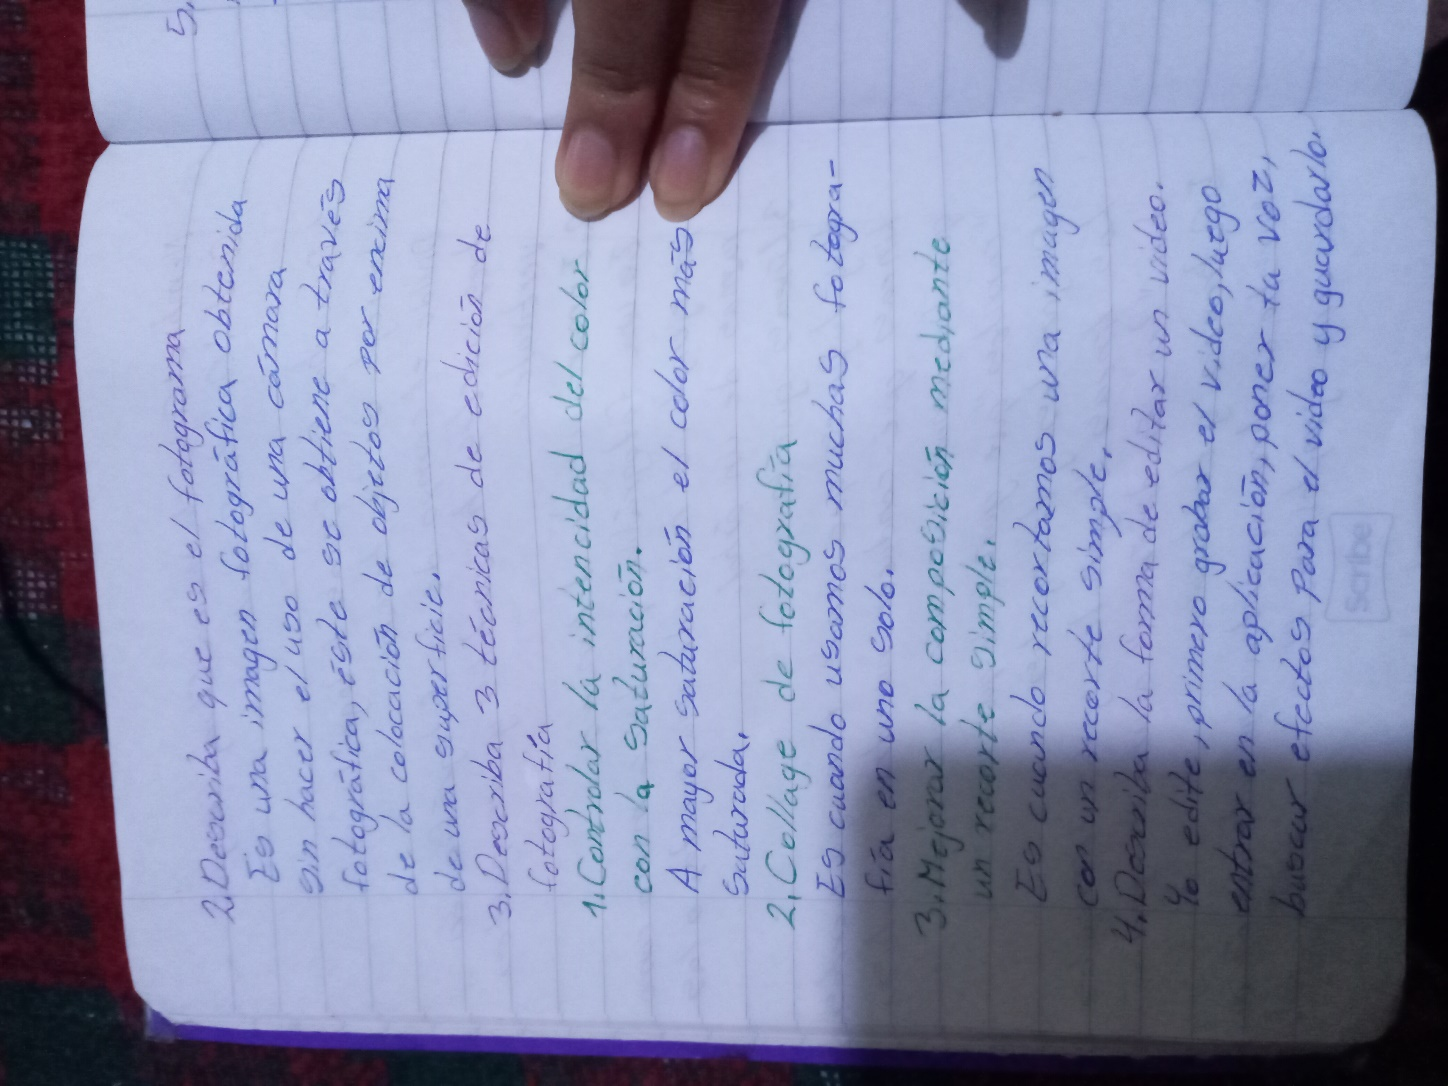 2. Describa que es el fotograma
Es una imagen fotográfica obtenida
sin hacer el uso de una cámara
fotográfica, éste se obtiene a través
de la colocación de objetos por encima
de una superficie.
3. Describa 3 técnicas de edición de
fotografía
1. Controlar la intencidad del color
con la saturación.
A mayor saturación el color más
saturada.
2. Collage de fotografía
Es cuando usamos muchas fotogra-
fía en uno solo.
3. Mejorar la composición mediante
un recorte simple.
Es cuando recortamos una imagen
con un recorte simple.
4. Describa la forma de editar un video.
Yo edite, primero grabar el video, luego
entrar en la aplicación, poner tu voz,
buscar efectos para el video y guardarlo.
Scribe
5.